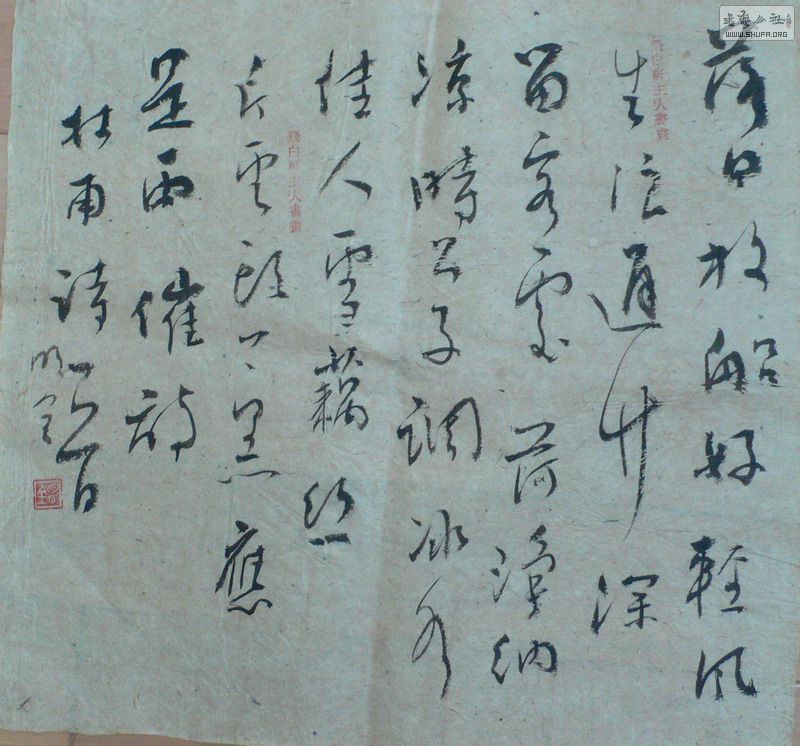 書藝公社
WWW.SHUFA.ORG
落日放船好輕風
生浪遲竹深
留客處荷淨納
涼時公子調冰水
佳人雪藕絲
片雲頭上黑應
是雨催詩
杜甫詩一首
明
飛白軒主人書畫
飛白軒主人書畫